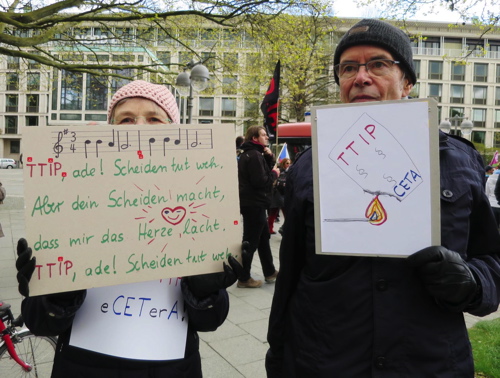 3/4
TTIP, ade! Scheiden tut weh.
Aber dein Scheiden macht,
dass mir das Herze lacht.
TTIP, ade! Scheiden tut weh.
eCETerA!
TTIP
§
§
§§
CETA